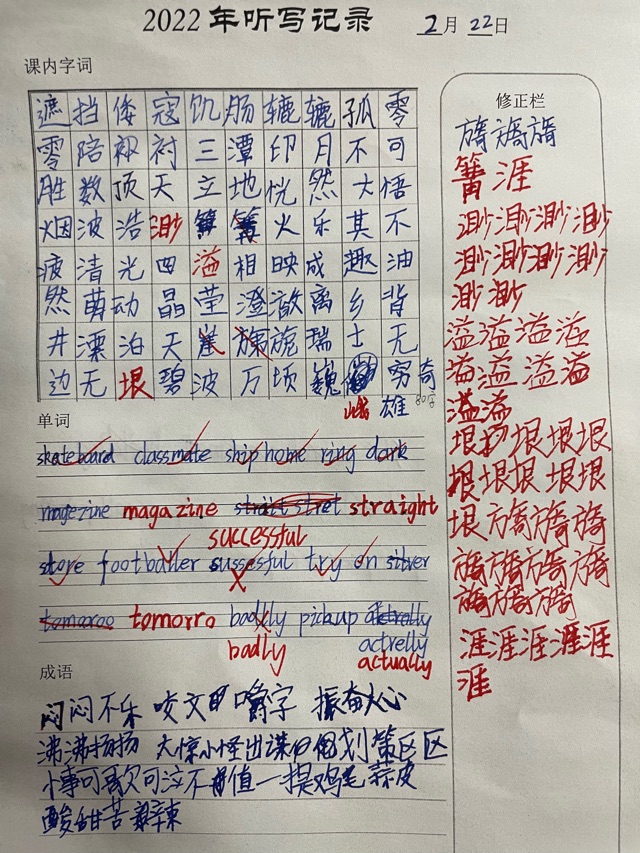 2022年听写记录 2月22日
课内字词
遮挡倭寇饥肠辘辘孤零
零陪衩衬三潭印月不可
胜数顶天立地恍然大悟
烟波浩渺篝火乐其不
疲清光四溢相映成趣油
然萌动晶莹澄澈离乡背
井漂泊天涯旖旎瑞士无
边无垠碧波万顷巍峨穷奇
雄
单词
skateboard classmate ship home ring dark
magezine magazine straight
successful
store footballer sussesful try on silver
tomorro badlly pick up
badly actrelly
actually
成语
闷闷不乐 咬文嚼字 振奋人心
沸沸扬扬 大惊小怪出谋划策区区
小事可歌可泣不值一提鸡毛蒜皮
酸甜苦辣
修正栏
旖旖旖
篝涯
渺渺渺渺
渺渺渺渺
渺渺
溢溢溢溢
溢溢溢溢
溢溢
垠垠垠垠垠
垠垠垠垠垠
垠旖旖旖
旖旖旖旖
旖旖旖
涯涯涯涯涯
涯